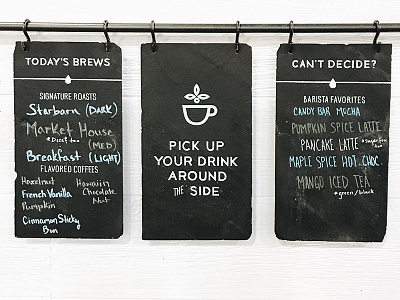 TODAY'S BREWS
SIGNATURE ROASTS
Starbarn (DARK)
Market House
*Decaf too (MED)
Breakfast (LIGHT)
FLAVORED COFFEES
Hazelnut
French Vanilla
Pumpkin
Cinnamon Sticky
Bun
Hawaiin
Chocolate
Nut
PICK UP
YOUR DRINK
AROUND
THE SIDE
CAN'T DECIDE?
BARISTA FAVORITES
CANDY BAR MOCHA
PUMPKIN SPICE LATTE
PANCAKE LATTE *sugar free too
MAPLE SPICE HOT CHOC.
MANGO ICED TEA
*green/black